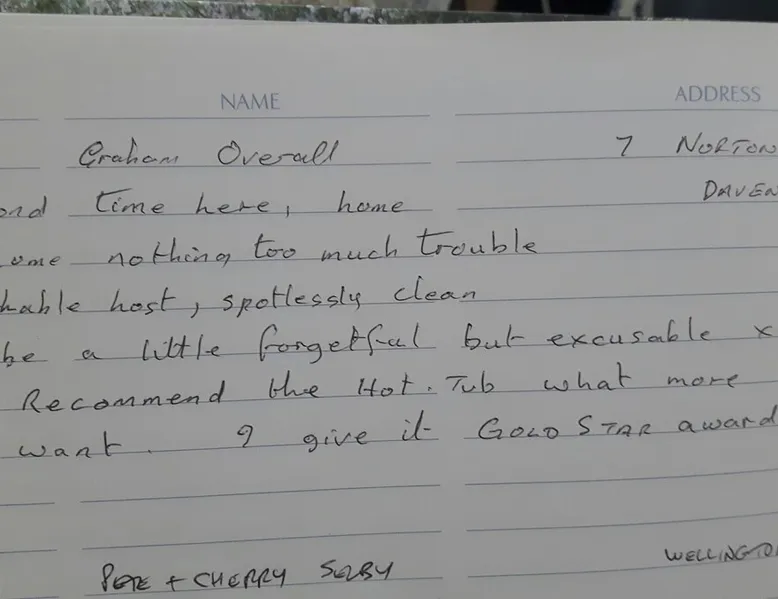 NAME ADDRESS
Graham Overall 7 NORTON
ond time here, home DAVEN
ome nothing too much trouble
hable host, spotlessly clean
be a little forgetful but excusable x
Recommend the Hot. Tub what more
want. I give it GOLD STAR award
PETE + CHERRY SELBY WELLINGTON